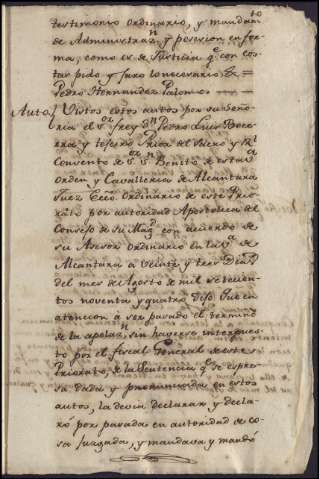 10
testimonio ordinario, y mandam.
de Administraz.n y posesion en for
ma, como es de Justicia q.e con cos
tas pido y juro lo necesario &.=
Pedro Hernandez Palomo =
Auto} Vistos estos autos por su Seño
ria el S.or frey D.n Pedro Luis Bece
rra y Prior del Sacro y R.l
Convento de S.n Benito de esta
Orden y Cavalleria de Alcantara
Juez Ecc.o Ordinario de este Prio
rato por autoridad Apostolica del
Consejo de su Mag.d con acuerdo de
su Asesor Ordinario en la V.a de
Alcantara a veinte y tres Dias
del mes de Agosto de mil setecien
tos noventa y quatro dijo: Que en
atencion a ser pasado el termino
de la apelaz.n sin haverse interpues
to por el fiscal General de este
Priorato, de la Sentencia q.e se espre
sa dada y pronunciada en estos
autos, la devia declarar y decla
ró por pasada en autoridad de co
sa juzgada, y mandava y mandó